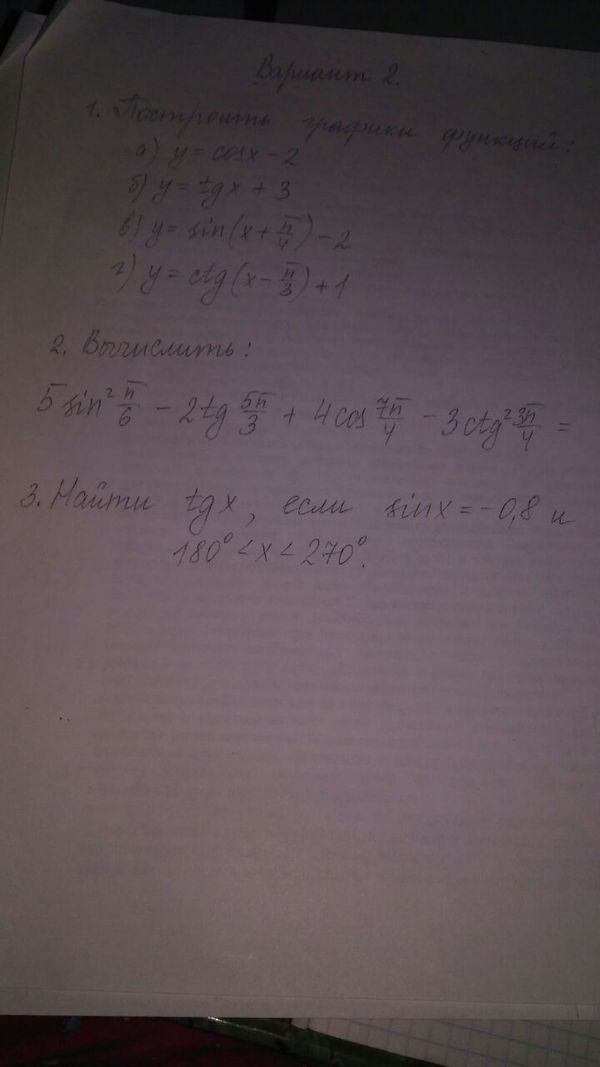 Вариант 2.
1. Построить графики функций:
а) y = cosx - 2
б) y = tgx + 3
в) y = sin(x + π/4) - 2
г) y = ctg(x - π/3) + 1
2. Вычислить:
5 sin² π/6 - 2tg 5π/3 + 4cos 7π/4 - 3ctg² 3π/4 =
3. Найти tgx, если sinx = -0,8 и
180° < x < 270°.